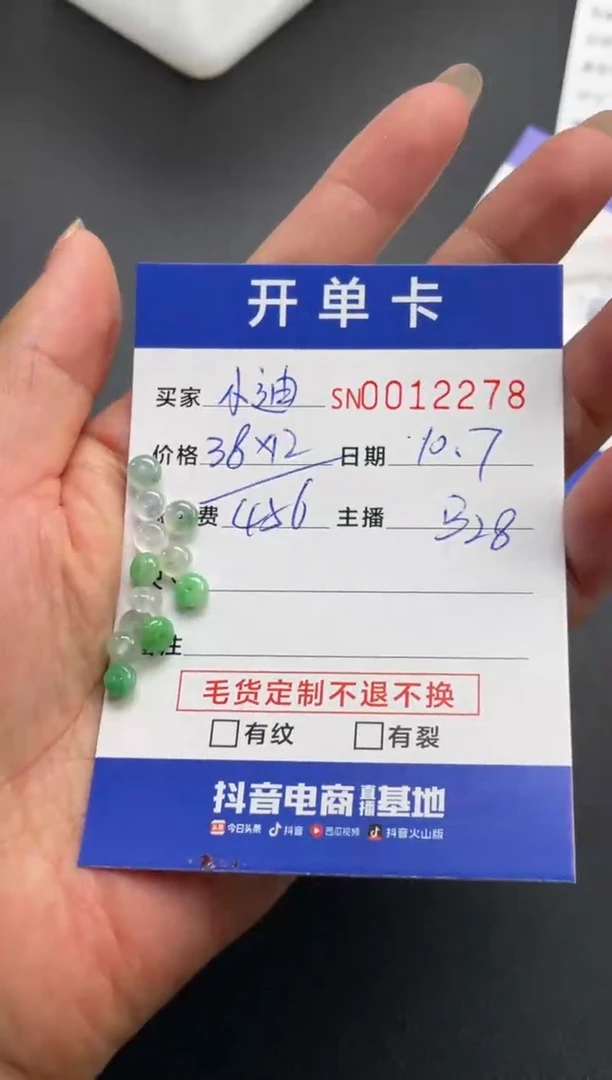 开单卡
买家 小迪 SN0012278
价格 38×12 日期 10.7
费 456 主播 328
注
毛货定制不退不换
□有纹 □有裂
抖音电商直播基地
今日头条 抖音 西瓜视频 抖音火山版